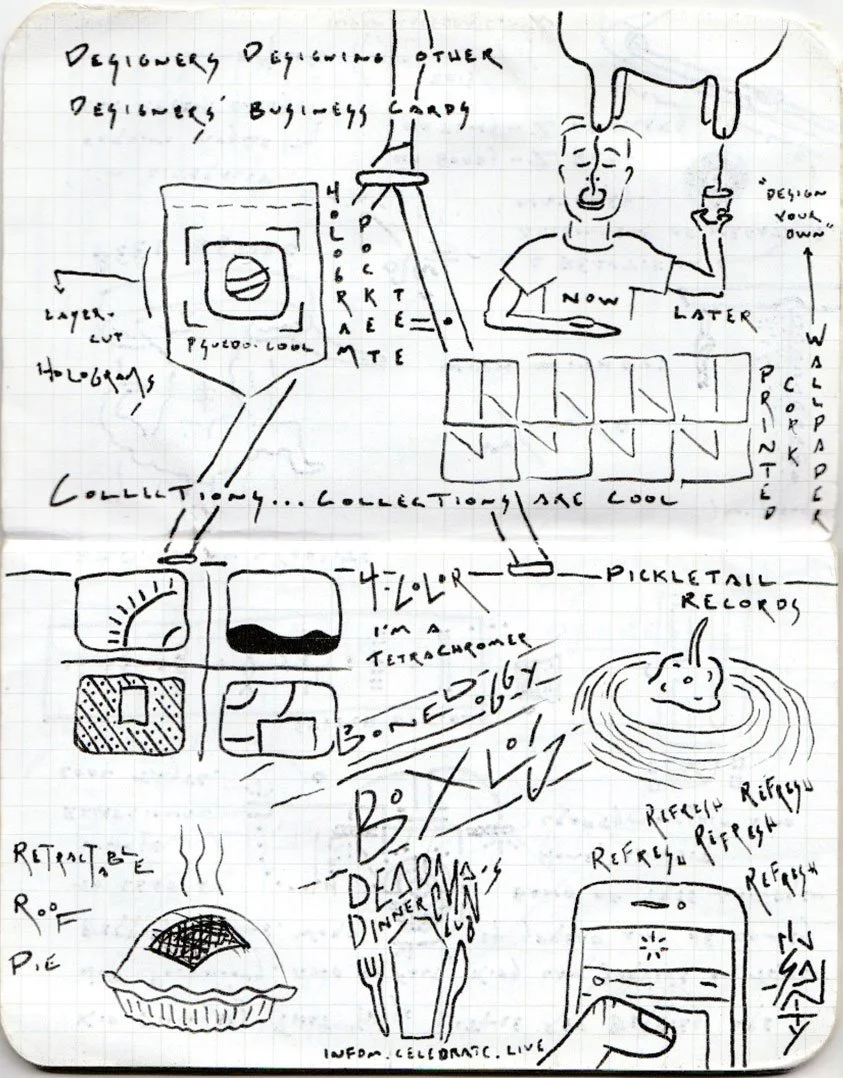 DESIGNERS DESIGNING OTHER
DESIGNERS' BUSINESS CARDS
HOLOGRAM
POCKET
TEE
LAYER-
CUT
HOLOGRAMS
PSUEDO-COOL
"DESIGN
YOUR
OWN"
NOW
LATER
PRINTED
CORK
WALLPAPER
COLLECTIONS... COLLECTIONS ARE COOL
4-COLOR
I'M A
TETRACHROMER
PICKLETAIL
RECORDS
BONED
BOX
RETRACTABLE
ROOF
PIE
DEADMAN'S
DINNER
CLUB
REFRESH REFRESH
REFRESH REFRESH
REFRESH
INSANITY
INFDM.CELEBRATE.LIVE